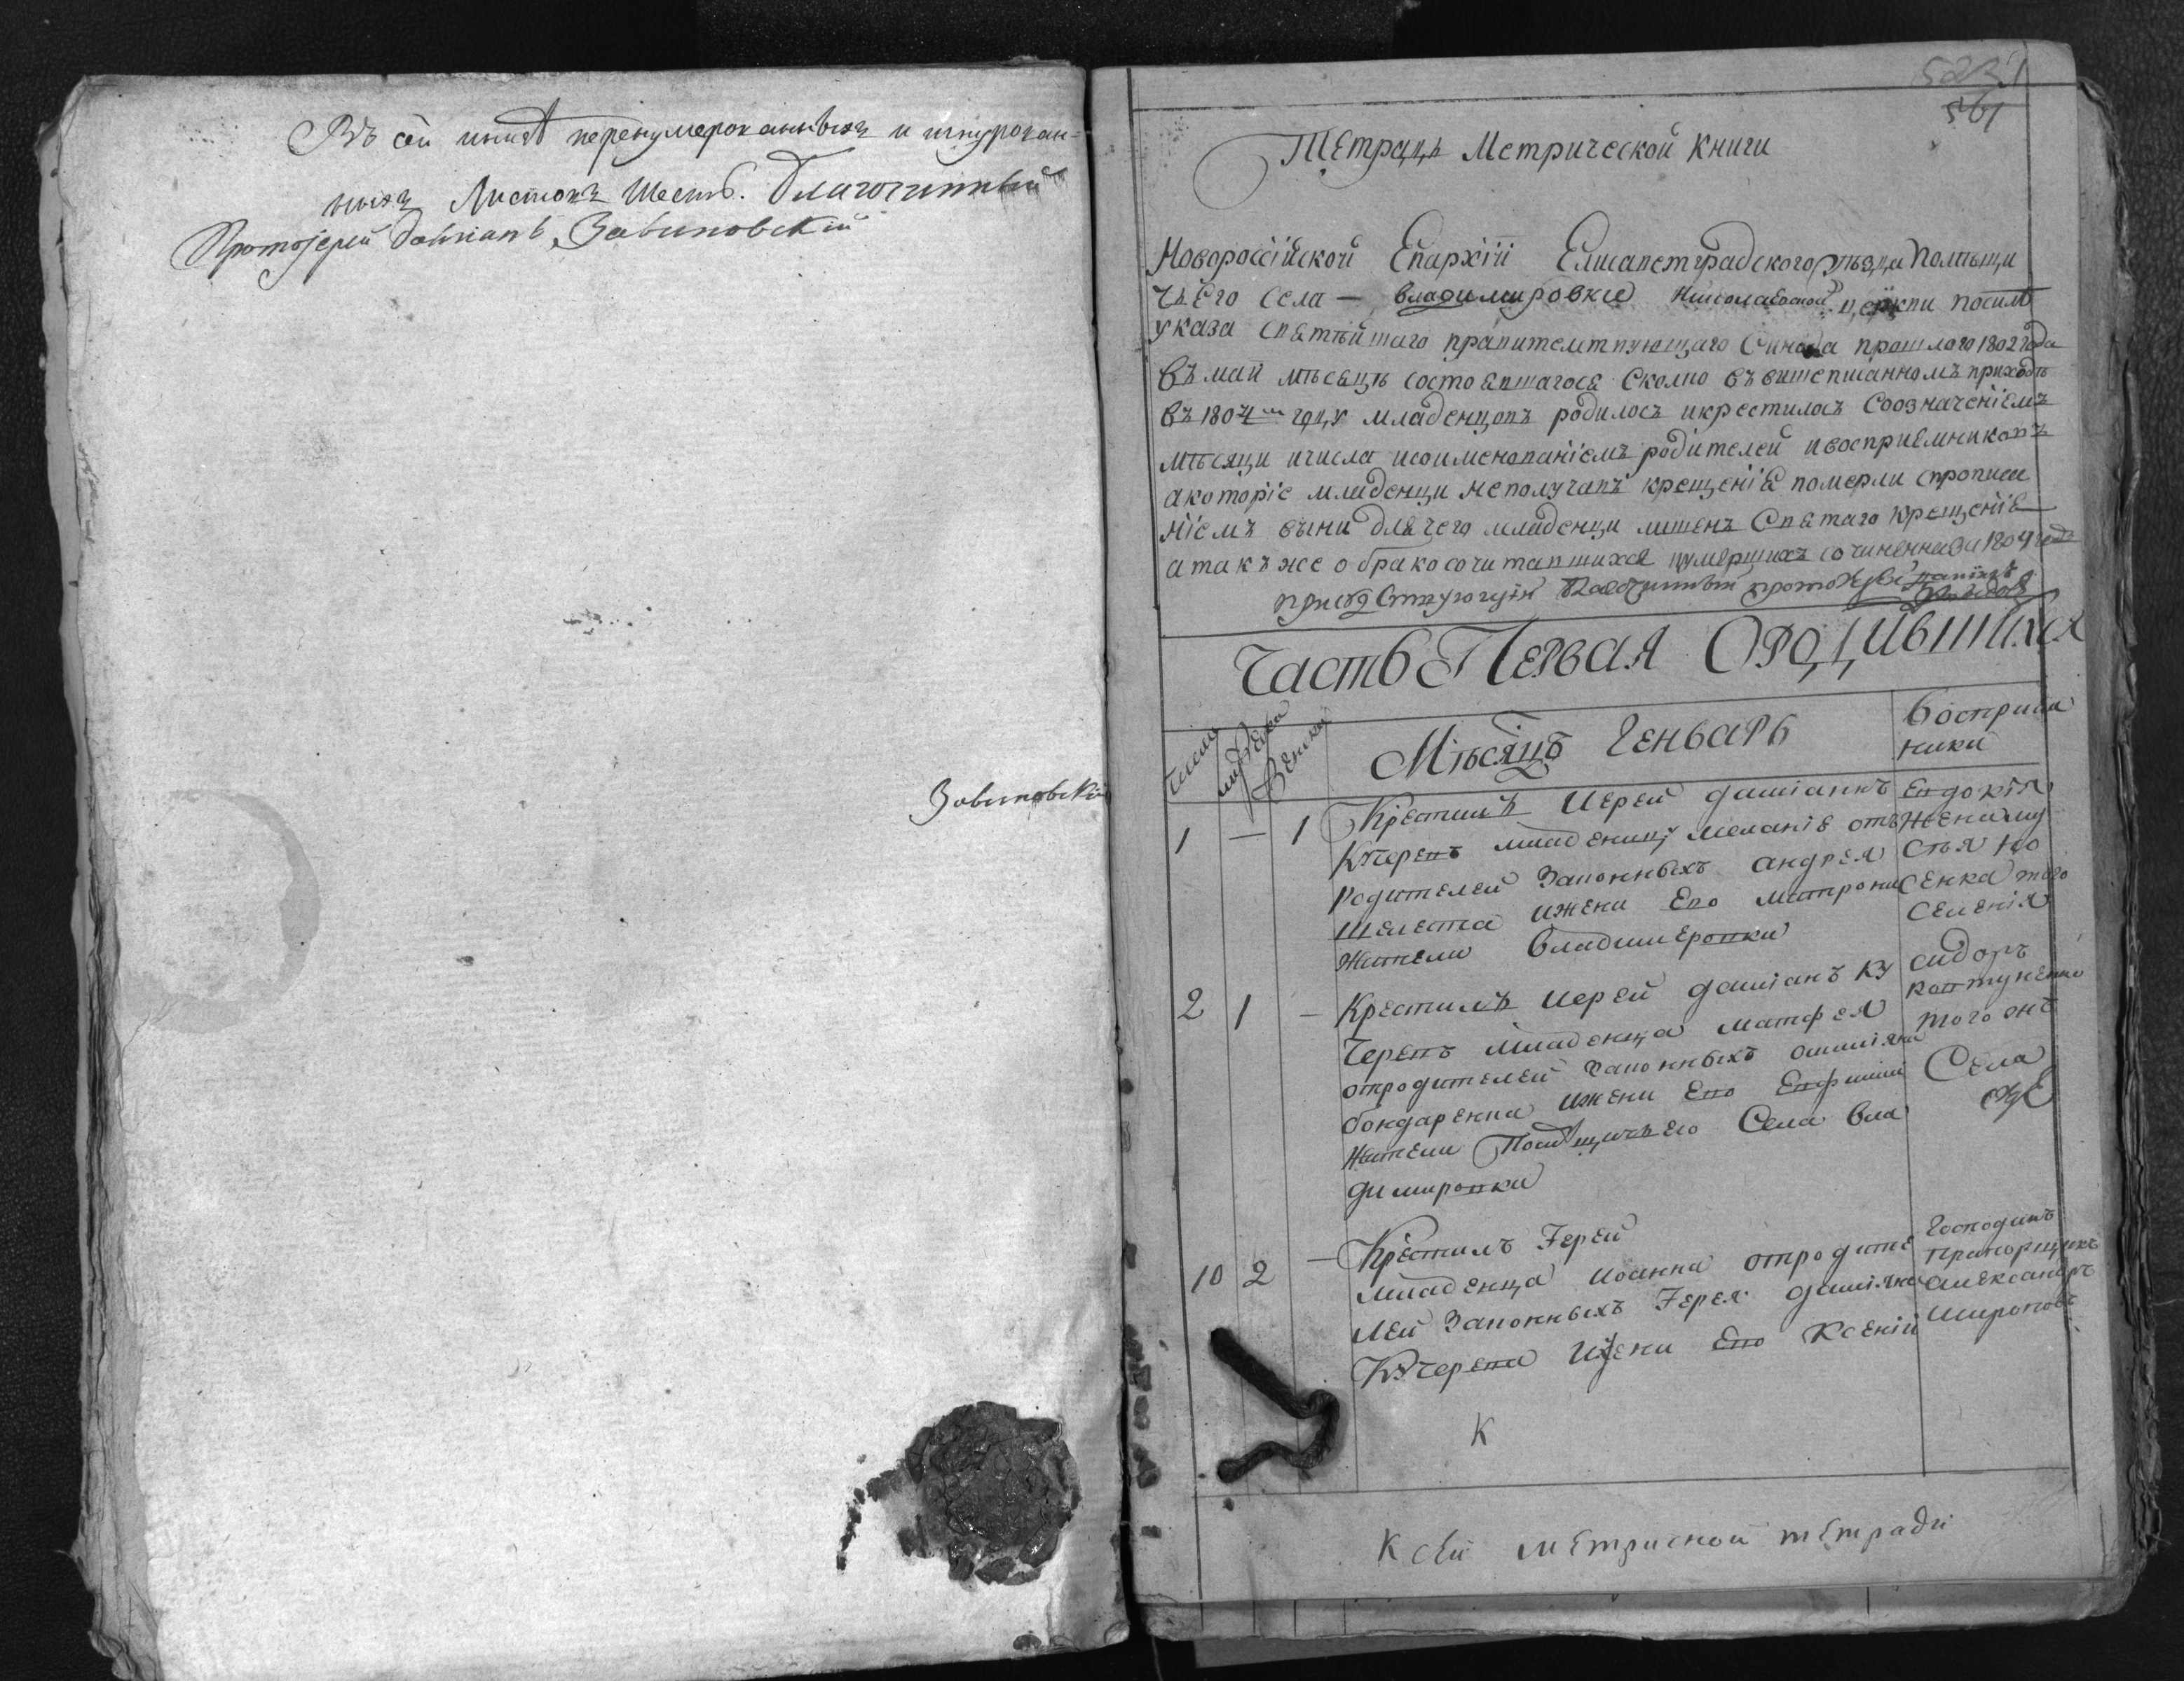 Въ сей книгѣ перенумерованныхъ и шнурован-
ныхъ Листовъ Шесть. Благочинный
Протоіерей Завиновскій
Завиновскій
561
Тетрадь Метрической книги
Новороссійской Епархіи Елисаветградского уѣзда Помѣщи
чьего Села — владимировки Николаевской церкви посилѣ
указа Святѣйшаго правителтвующаго Синода прошлого 1802 года
въ маи мѣсяцѣ состоявшагося Сколко въ вишеписанномъ приходѣ
въ 1804м году младенцовъ родилось икрестилось Соозначеніемъ
мѣсяци ичисла исоименованіемъ родителей ивоспріемниковъ
акоторіе младенци неполучавъ крещенія померли спрописа
ніемъ вини для чего младенци лишенъ Святаго крещенія
атакъ же обракосочитавшихся иумершихъ сочиненная 1804 года
Присудствующій Благочинный протоіерей
Часть Первая Ородившихся
число
мужеска
женска
Мѣсяцъ Генварь
воспріем
ники
1 — 1 Крестилъ Иерей даміанъ
Кучеровъ младеницу меланію отъ
Родителей Законныхъ андрея
шелеста ижени Его матрони
Жители владимеровки
Евдокія
жена му
сѣя ко
сенка того
селенія
2 1 — Крестилъ Иерей даміанъ Ку
черевъ младенца матфея
отродителей Законныхъ
бондаренка ижени Его Евфиміи
Жители Помѣщичьего Села вла
димировки
сидоръ
ковтуненко
того онъ
Села
10 2 — Крестилъ Іерей
младенца иоанна отродите
лей Законныхъ Іерея даміана
Кучерева ижени Его Ксеніи
Господинъ
Прапорщикъ
александръ
мироновъ
К
К сей метричной тетради